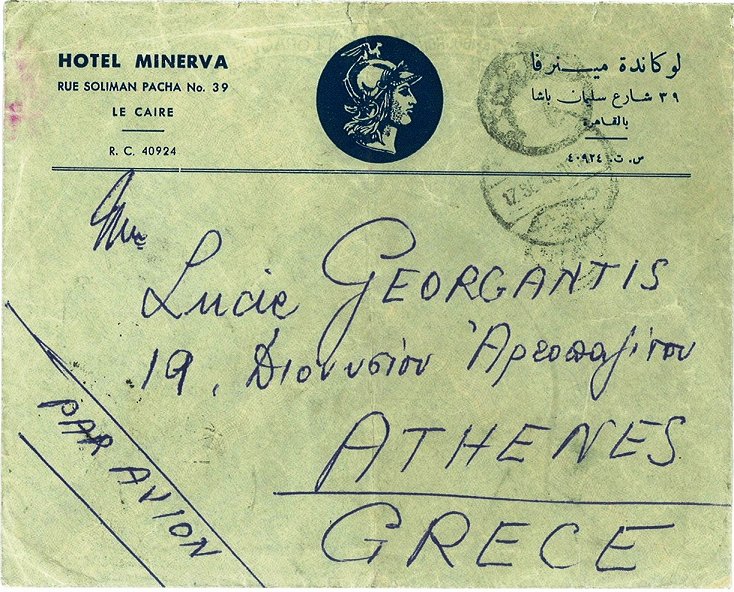 HOTEL MINERVA
RUE SOLIMAN PACHA No. 39
LE CAIRE
R. C. 40924
لوكاندة مينرفا
٣٩ شارع سليمان باشا
بالقاهرة
س. ت. ٤٠٩٢٤
Lucie GEORGANTIS
19, Διονυσίου Ἀρεοπαγίτου
ATHENES
GRECE
PAR AVION